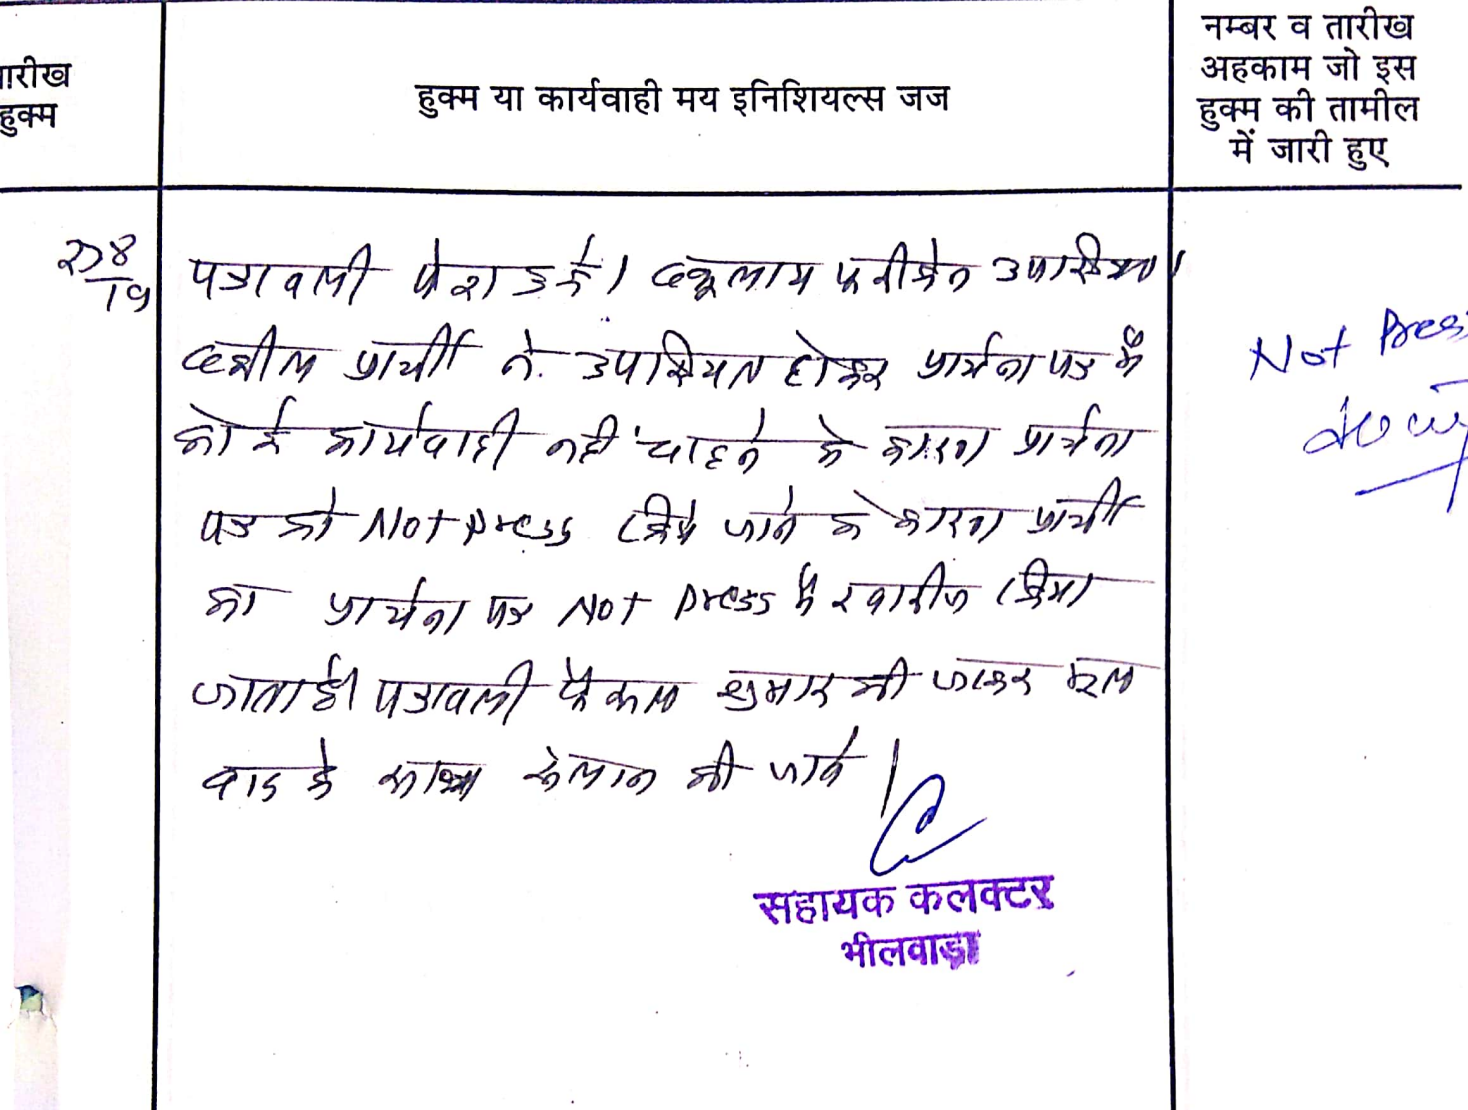 तारीख
हुक्म
हुक्म या कार्यवाही मय इनिशियल्स जज
नम्बर व तारीख
अहकाम जो इस
हुक्म की तामील
में जारी हुए
पत्रावली पेश हुई। वकूलाय फरीकेन उपस्थित।
वकील प्रार्थी ने उपस्थित होकर प्रार्थना पत्र में
कोई कार्यवाही नहीं चाहने के कारण प्रार्थना
पत्र को Not Press किये जाने के कारण प्रार्थी
का प्रार्थना पत्र Not press में खारीज किया
जाता है। पत्रावली फैसल शुमार की जाकर मूल
वाद के साथ संलग्न की जावे।
Not Press
सहायक कलक्टर
भीलवाड़ा